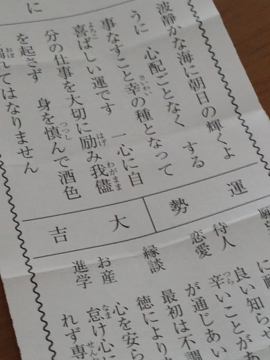 波静かな海に朝日の輝くよ
うに 心配ごとなく する
事なすこと幸の種となって
喜ばしい運です 一心に自
分の仕事を大切に励み我儘
を起さず 身を慎んで酒色
に
溺れてはなりません
運勢
大吉
待人
恋愛
縁談
お産
進学
良い知らせ
辛いことがあ
が通じあい
最初は不調
徳により
心を安ら
怠け心に
れず専